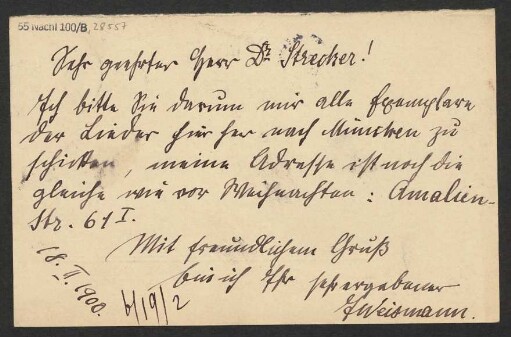 55 Nachl 100/B 28557
Sehr geehrter Herr Dr Strecker!
Ich bitte Sie darum mir alle Exemplare
der Lieder hierher nach München zu
schicken, meine Adresse ist noch die
gleiche wie vor Weihnachten: Amalien-
str. 61 I.
Mit freundlichem Gruß
bin ich Ihr sehr ergebener
JWeismann.
18. II. 1900.
b/19/2